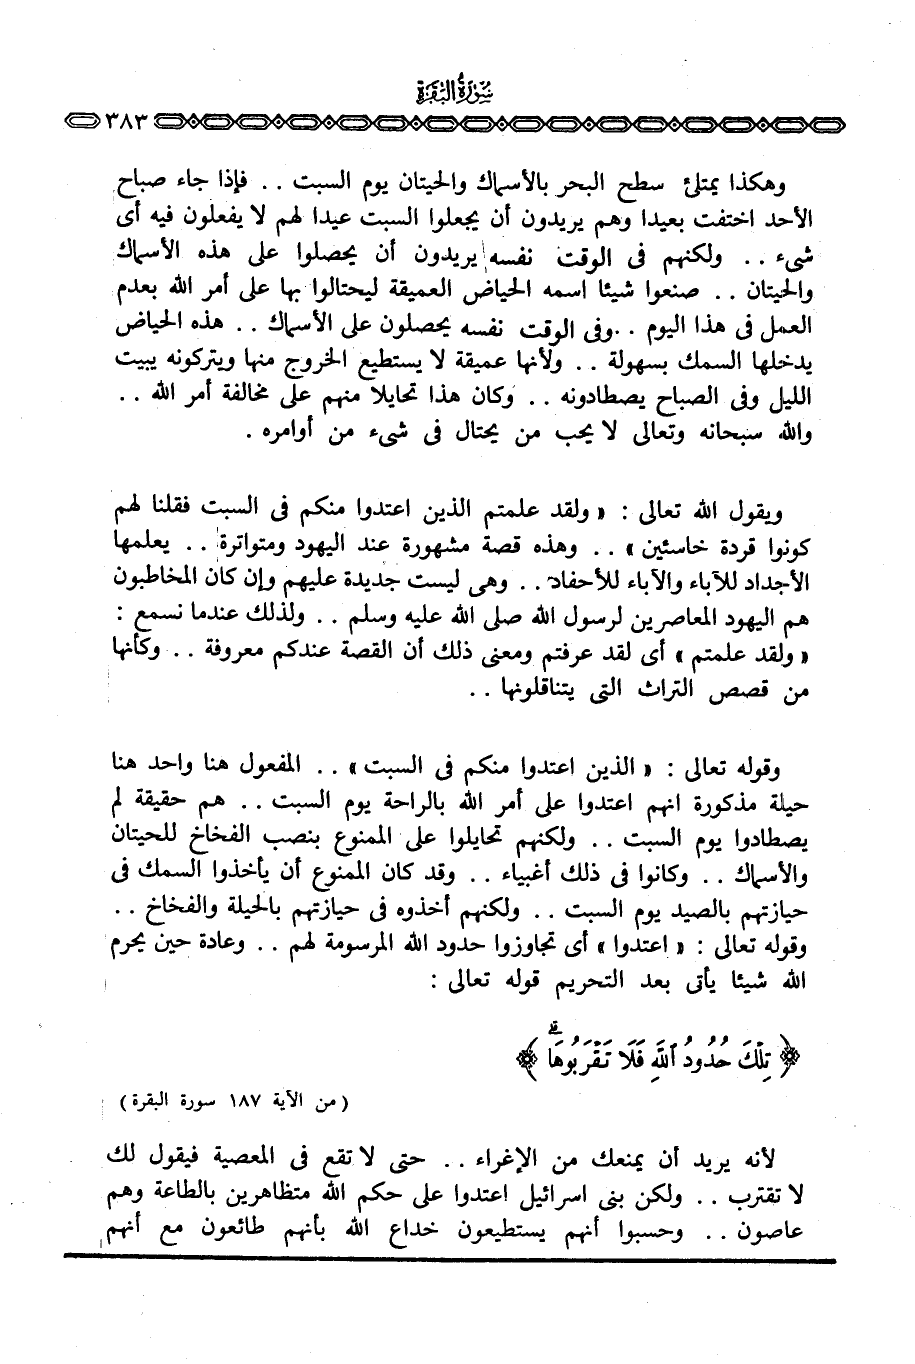 سورة البقرة
٣٨٣
وهكذا يمتلئ سطح البحر بالأسماك والحيتان يوم السبت .. فإذا جاء صباح
الأحد اختفت بعيدا وهم يريدون أن يجعلوا السبت عيدا لهم لا يفعلون فيه أى
شىء .. ولكنهم فى الوقت نفسه يريدون أن يحصلوا على هذه الأسماك
والحيتان .. صنعوا شيئا اسمه الحياض العميقة ليحتالوا بها على أمر الله بعدم
العمل فى هذا اليوم .. وفى الوقت نفسه يحصلون على الأسماك .. هذه الحياض
يدخلها السمك بسهولة .. ولأنها عميقة لا يستطيع الخروج منها ويتركونه يبيت
الليل وفى الصباح يصطادونه .. وكان هذا تحايلا منهم على مخالفة أمر الله ..
والله سبحانه وتعالى لا يحب من يحتال فى شىء من أوامره .
ويقول الله تعالى : « ولقد علمتم الذين اعتدوا منكم فى السبت فقلنا لهم
كونوا قردة خاسئين » .. وهذه قصة مشهورة عند اليهود ومتواترة .. يعلمها
الأجداد للآباء والآباء للأحفاد .. وهى ليست جديدة عليهم وإن كان المخاطبون
هم اليهود المعاصرين لرسول الله صلى الله عليه وسلم .. ولذلك عندما نسمع :
« ولقد علمتم » أى لقد عرفتم ومعنى ذلك أن القصة عندكم معروفة .. وكأنها
من قصص التراث التى يتناقلونها ..
وقوله تعالى : « الذين اعتدوا منكم فى السبت » .. المفعول هنا واحد هنا
حيلة مذكورة انهم اعتدوا على أمر الله بالراحة يوم السبت .. هم حقيقة لم
يصطادوا يوم السبت .. ولكنهم تحايلوا على الممنوع بنصب الفخاخ للحيتان
والأسماك .. وكانوا فى ذلك أغبياء .. وقد كان الممنوع أن يأخذوا السمك فى
حيازتهم بالصيد يوم السبت .. ولكنهم أخذوه فى حيازتهم بالحيلة والفخاخ ..
وقوله تعالى : « اعتدوا » أى تجاوزوا حدود الله المرسومة لهم .. وعادة حين يحرم
الله شيئا يأتى بعد التحريم قوله تعالى :
﴿ تِلْكَ حُدُودُ ٱللَّهِ فَلَا تَقْرَبُوهَا ۗ ﴾
( من الآية ١٨٧ سورة البقرة )
لأنه يريد أن يمنعك من الإغراء .. حتى لا تقع فى المعصية فيقول لك
لا تقترب .. ولكن بنى اسرائيل اعتدوا على حكم الله متظاهرين بالطاعة وهم
عاصون .. وحسبوا أنهم يستطيعون خداع الله بأنهم طائعون مع أنهم